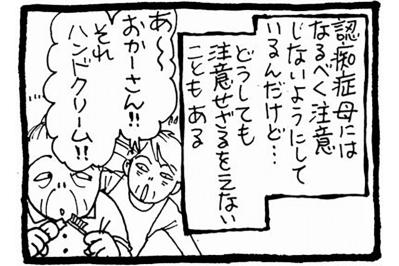 認痴症母には
なるべく注意
じないようにして
いるんだけど…
どうしても
注意せざるをえない
こともある
あ〜〜
おかーさん!!
それ
ハンドクリーム!!